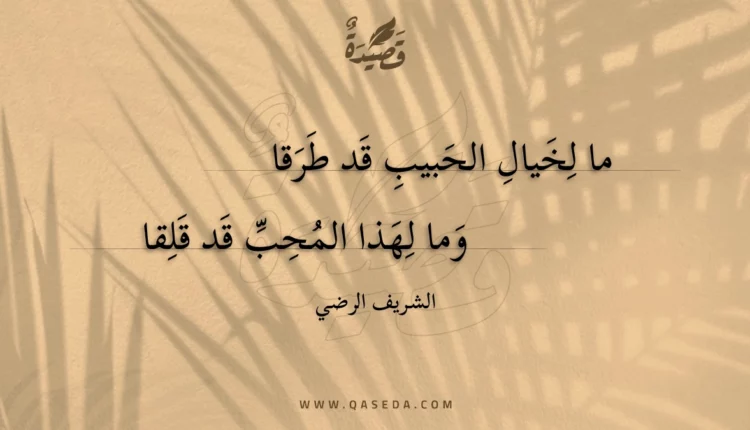 قَصِيْدَةٌ
ما لِخَيالِ الحَبيبِ قَد طَرَقا
وَما لِهَذا المُحِبِّ قَد قَلِقا
الشريف الرضي
WWW.QASEDA.COM